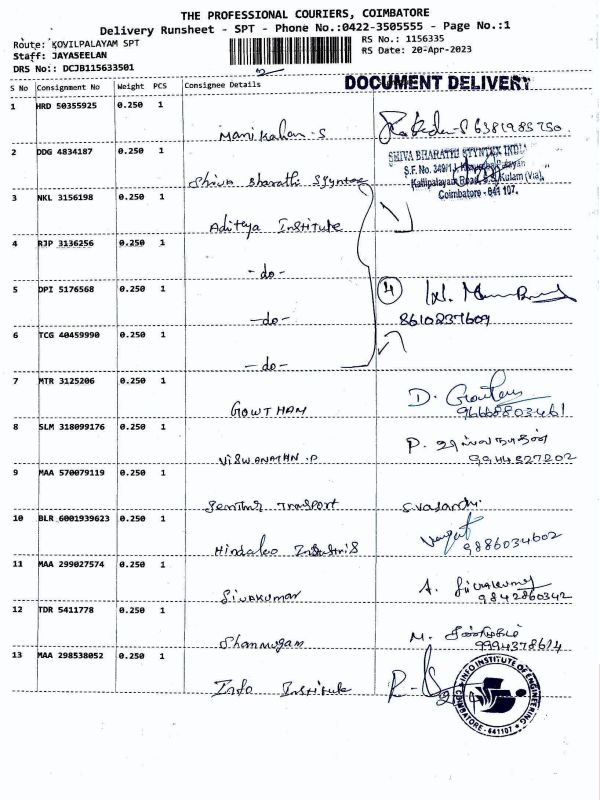 THE PROFESSIONAL COURIERS, COIMBATORE
Delivery Runsheet - SPT - Phone No.:0422-3505555 - Page No.:1
Route: KOVILPALAYAM SPT
RS No.: 1156335
Staff: JAYASEELAN
RS Date: 20-Apr-2023
DRS No:: DCJB115633501
S No Consignment No Weight PCS Consignee Details DOCUMENT DELIVERY
1 HRD 50355925 0.250 1
Manikahan S 6381985750
2 DDG 4834187 0.250 1
SHIVA BHARATHI SYNTEX INDIA
S.F. No. 349/1
Kallipalayam Road, S.S. Kulam (Via),
Coimbatore - 641 107.
Shiva Bharathi Syntex
3 NKL 3156198 0.250 1
Aditya Institute
4 RJP 3136256 0.250 1
-do-
5 DPI 5176568 0.250 1
4
-do- 8610837609
6 TCG 40459990 0.250 1
-do-
7 MTR 3125206 0.250 1
D.
GOWTHAM
8 SLM 318099176 0.250 1
P.
VISWANATHAN .P 9944527202
9 MAA 570079119 0.250 1
Transport S.Vasanthi
10 BLR 6001939623 0.250 1
Hindalco 9886034602
11 MAA 299027574 0.250 1
A.
Sivakumar 9842860342
12 TDR 5411778 0.250 1
M. சண்முகம்
Shanmugam
13 MAA 298538052 0.250 1
Info Institute
INFO INSTITUTE OF ENGINEERING
COIMBATORE - 641107